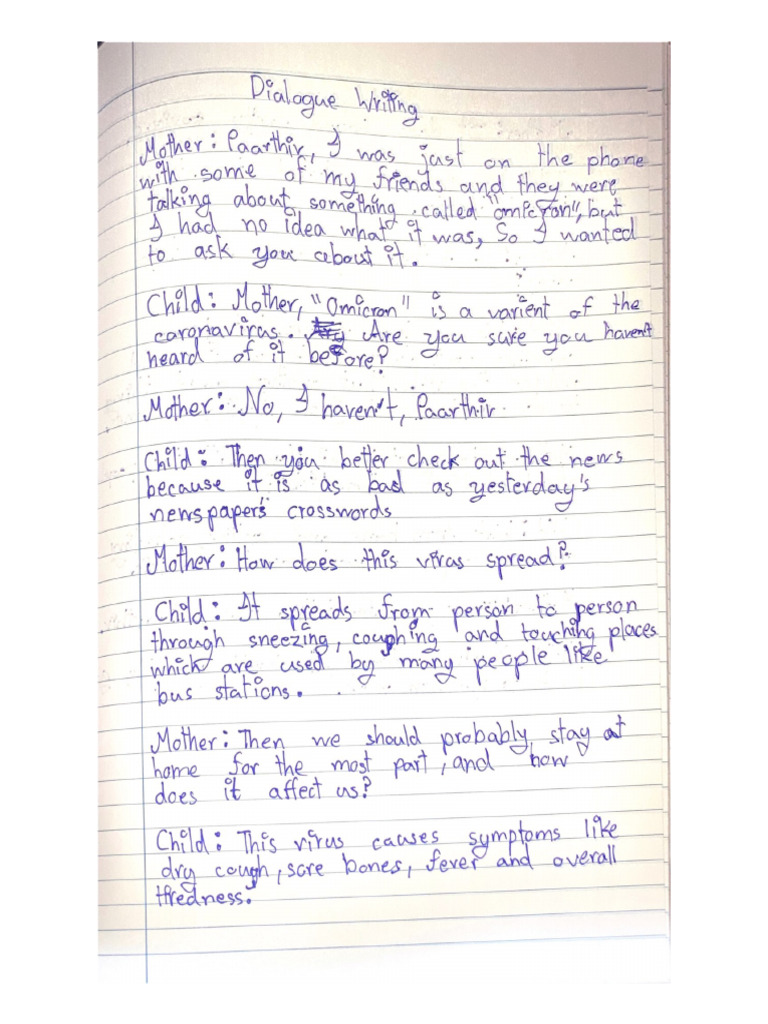 Dialogue Writing
Mother: Paarthiv, I was just on the phone
with some of my friends and they were
talking about something called "omicron", but
I had no idea what it was, So I wanted
to ask you about it.
Child: Mother, "Omicron" is a varient of the
coronavirus. Are you sure you haven't
heard of it before?
Mother: No, I haven't, Paarthiv.
Child: Then you better check out the news
because it is as bad as yesterday's
newspaper's crosswords
Mother: How does this virus spread?
Child: It spreads from person to person
through sneezing, coughing and touching places
which are used by many people like
bus stations.
Mother: Then we should probably stay at
home for the most part, and how
does it affect us?
Child: This virus causes symptoms like
dry cough, sore bones, fever and overall
tiredness.